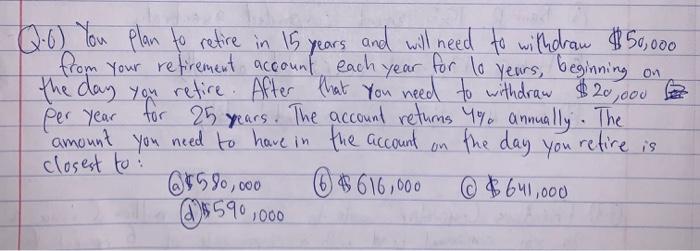 Q.6) You plan to retire in 15 years and will need to withdraw $50,000
from your retirement account each year for 10 years, beginning on
the day you retire. After that you need to withdraw $20,000
per year for 25 years. The account returns 4% annually. The
amount you need to have in the account on the day you retire is
closest to:
(a) $580,000 (b) $616,000 (c) $641,000
(d) $590,000